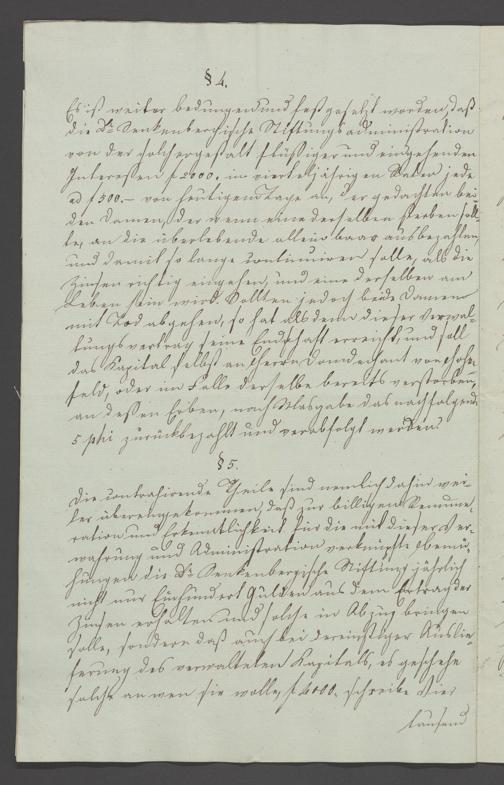 § 4.
Es ist weiter bedungen und festgesetzt worden, daß
die Dr. Senkenbergische Stiftungs administration
von der solchergestalt flüssiger und eingehenden
Interessen f 2000. in vierteljährigen Raten, jede
ad f 500.– von heutigem Tage an, der gedachten bei-
den Damen, oder wenn eine derselben sterben soll-
te, an die überlebende allein baar ausbezahlen,
und damit so lange continuiren solle, als die
Zinsen richtig eingehen, und eine derselben am
Leben sein wird. Sollten jedoch beide Damen
mit Tod abgehen, so hat alsdenn dieser Verwal-
tungsvertrag seine Endschaft erreicht, und soll
das Kapital selbst an Herrn Domdechant von Hohen-
feld, oder im Falle derselbe bereits verstorben,
an dessen Erben, nach Masgabe des nachfolgenden
5 phi zurückbezahlt und verabfolgt werden.
§ 5.
Die contrahirende Theile sind nemlich dahin wei-
ter übereingekommen, daß zur billigen Remune-
ration und Erkenntlichkeit für die mit dieser Ver-
wahrung und Administration verknüpfte Bemü-
hungen die Dr. Senkenbergische Stiftung jährlich
nicht nur Fünfhundert Gulden aus dem Ertrag der
Zinsen erhalten und solche in Abzug bringen
solle, sondern daß auch bei dereinstiger Auslie-
ferung des verwalteten Kapitals, es geschehe
solche an wen sie wolle, f 4000. schreibe Vier
tausend